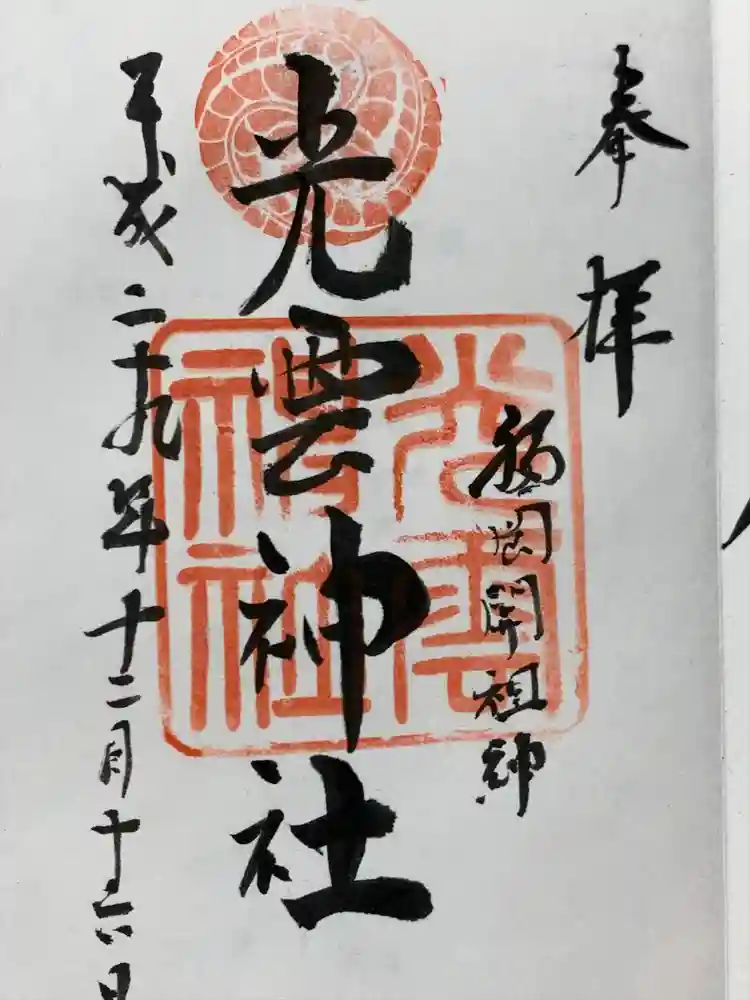 奉拝
福岡開祖神
光雲神社
光雲神社
平成二十九年十二月十六日